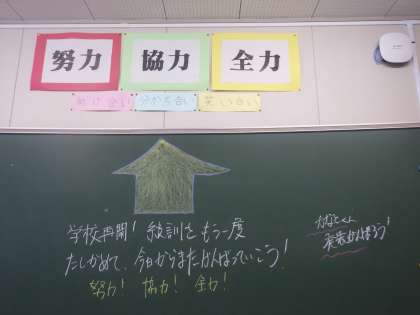 努力
協力
全力
助け合い
分かち合い
笑い合い
学校再開！級訓をもう一度
たしかめて、今日からまたがんばっていこう！
努力！ 協力！ 全力！
発表がんばろう！